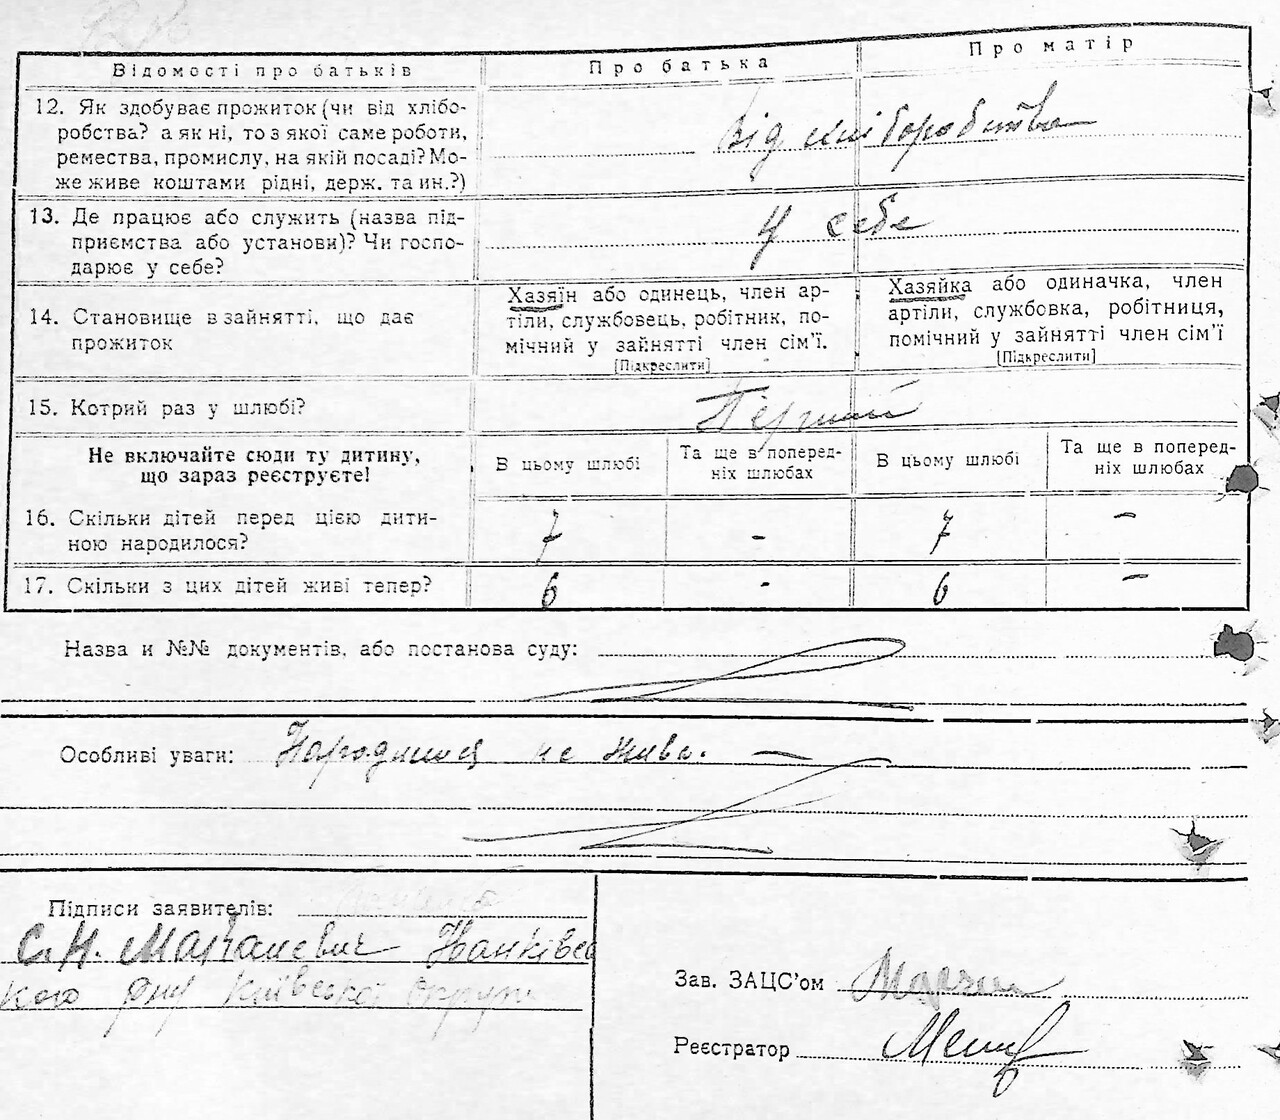 Відомості про батьків
Про батька
Про матір
12. Як здобуває прожиток (чи від хлібо-
робства? а як ні, то з якої саме роботи,
ремества, промислу, на якій посаді? Мо-
же живе коштами рідні, держ. та ин.?)
Від хліборобства
13. Де працює або служить (назва під-
приємства або установи)? Чи госпо-
дарює у себе?
У себе
14. Становище в зайнятті, що дає
прожиток
Хазяїн або одинець, член ар-
тіли, службовець, робітник, по-
мічний у зайнятті член сім'ї.
[Підкреслити]
Хазяйка або одиначка, член
артіли, службовка, робітниця,
помічний у зайнятті член сім'ї
[Підкреслити]
15. Котрий раз у шлюбі?
Перший
Не включайте сюди ту дитину,
що зараз реєструєте!
В цьому шлюбі
Та ще в поперед-
ніх шлюбах
В цьому шлюбі
Та ще в поперед-
ніх шлюбах
16. Скільки дітей перед цією дити-
ною народилося?
7 - 7 -
17. Скільки з цих дітей живі тепер?
6 - 6 -
Назва и №№ документів, або постанова суду:
Особливі уваги: Народилися не жива. —
Підписи заявителів:
с. Н. Макалевич Іванківсь
кого р-ну Київської Округи
Зав. ЗАЦС'ом
Реєстратор